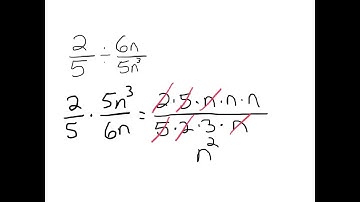 2/5 ÷ 6n/5n³
2/5 · 5n³/6n = 2·5·n·n·n/5·2·3·n
n²